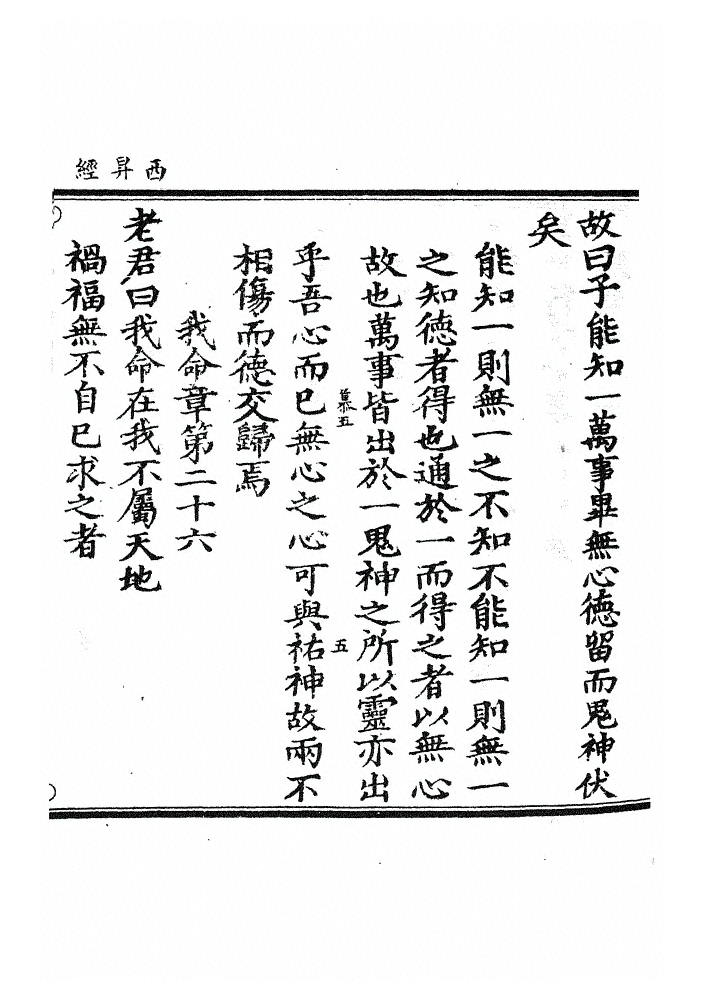 西昇經
故曰子能知一萬事畢無心德留而鬼神伏
矣
能知一則無一之不知不能知一則無一
之知德者得也通於一而得之者以無心
故也萬事皆出於一鬼神之所以靈亦出
慕五
五
乎吾心而已無心之心可與祐神故兩不
相傷而德交歸焉
我命章第二十六
老君曰我命在我不屬天地
禍福無不自已求之者